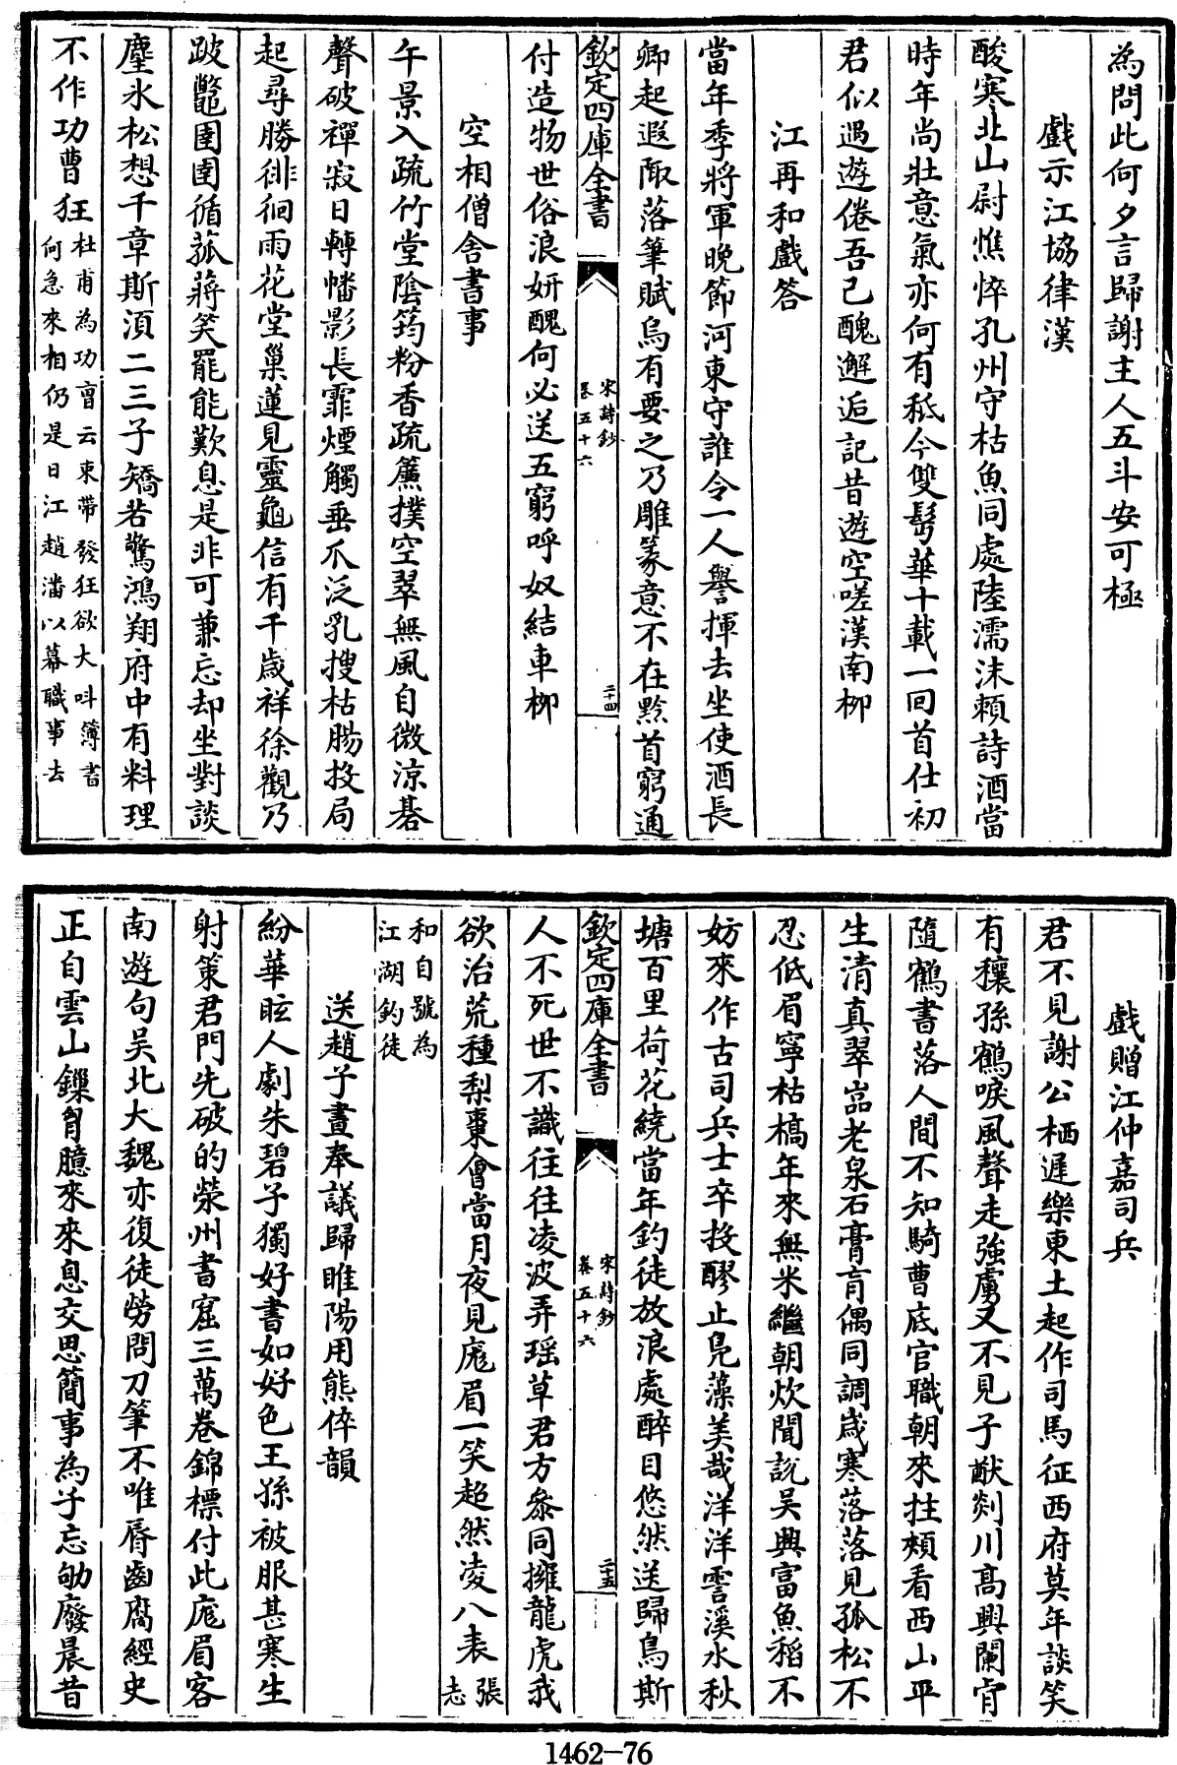 為問此何夕言歸謝主人五斗安可極
戲示江協律漢
酸寒北山尉憔悴孔州守枯魚同處陸濡沫賴詩酒當
時年尚壯意氣亦何有秪今雙鬂華十載一回首仕初
君似遇遊倦吾已醜邂逅記昔遊空嗟漢南柳
江再和戲答
當年季將軍晚節河東守誰令一人譽揮去坐使酒長
卿起遐陬落筆賦烏有要之乃雕篆意不在黔首窮通
欽定四庫全書
宋詩鈔
卷五十六
二十四
付造物世俗浪妍醜何必送五窮呼奴結車柳
空相僧舍書事
午景入疏竹堂陰筠粉香疏簾撲空翠無風自微涼碁
聲破禪寂日轉幡影長霏煙觸垂爪泛乳搜枯腸投局
起尋勝徘徊雨花堂巢蓮見靈龜信有千歲祥徐觀乃
跛鼈圉圉循菰蔣笑罷能歎息是非可兼忘却坐對談
塵氷松想千章斯湏二三子矯若驚鴻翔府中有料理
不作功曹狂
杜甫為功曺云束帶發狂欲大呌簿書
何急來相仍是日江趙潘以幕職事去
戲贈江仲嘉司兵
君不見謝公栖遲樂東土起作司馬征西府莫年談笑
有穰孫鶴唳風聲走強虜又不見子猷剡川髙興闌肯
隨鶴書落人間不知騎曹底官職朝來拄頰看西山平
生清真翠嵓老泉石膏肓偶同調歲寒落落見孤松不
忍低眉寧枯槁年來無米繼朝炊聞說吳興富魚稻不
妨來作古司兵士卒投醪止凫藻美哉洋洋霅溪水秋
塘百里荷花繞當年釣徒放浪處醉目悠然送歸鳥斯
欽定四庫全書
宋詩鈔
卷五十六
二十五
人不死世不識往往凌波弄瑶草君方叅同擁龍虎我
欲治荒種梨棗會當月夜見厖眉一笑超然凌八表
張志
和自號為
江湖釣徒
送趙子晝奉議歸睢陽用熊倅韻
紛華眩人劇朱碧子獨好書如好色王孫被服甚寒生
射策君門先破的滎州書窟三萬卷錦標付此厖眉客
南遊句吳北大魏亦復徒勞問刀筆不唯脣齒腐經史
正自雲山鏁胷臆來來息交思簡事為子忘劬廢晨昔
1462—76